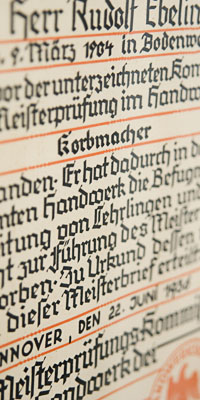 Herr Rudolf Ebelin
. 9. März 1904 in Bodenwe
vor der unterzeichneten Kom
Meisterprüfung im Handw
Korbmacher
anden. Er hat dadurch in d
nten Handwerk die Befug
itung von Lehrlingen und
ht zur Führung des Meister
orben. Zu Urkund dessen
dieser Meisterbrief erteilt
NNOVER, DEN 22. JUNI
Meisterprüfungs-Kommi
Handwerk der